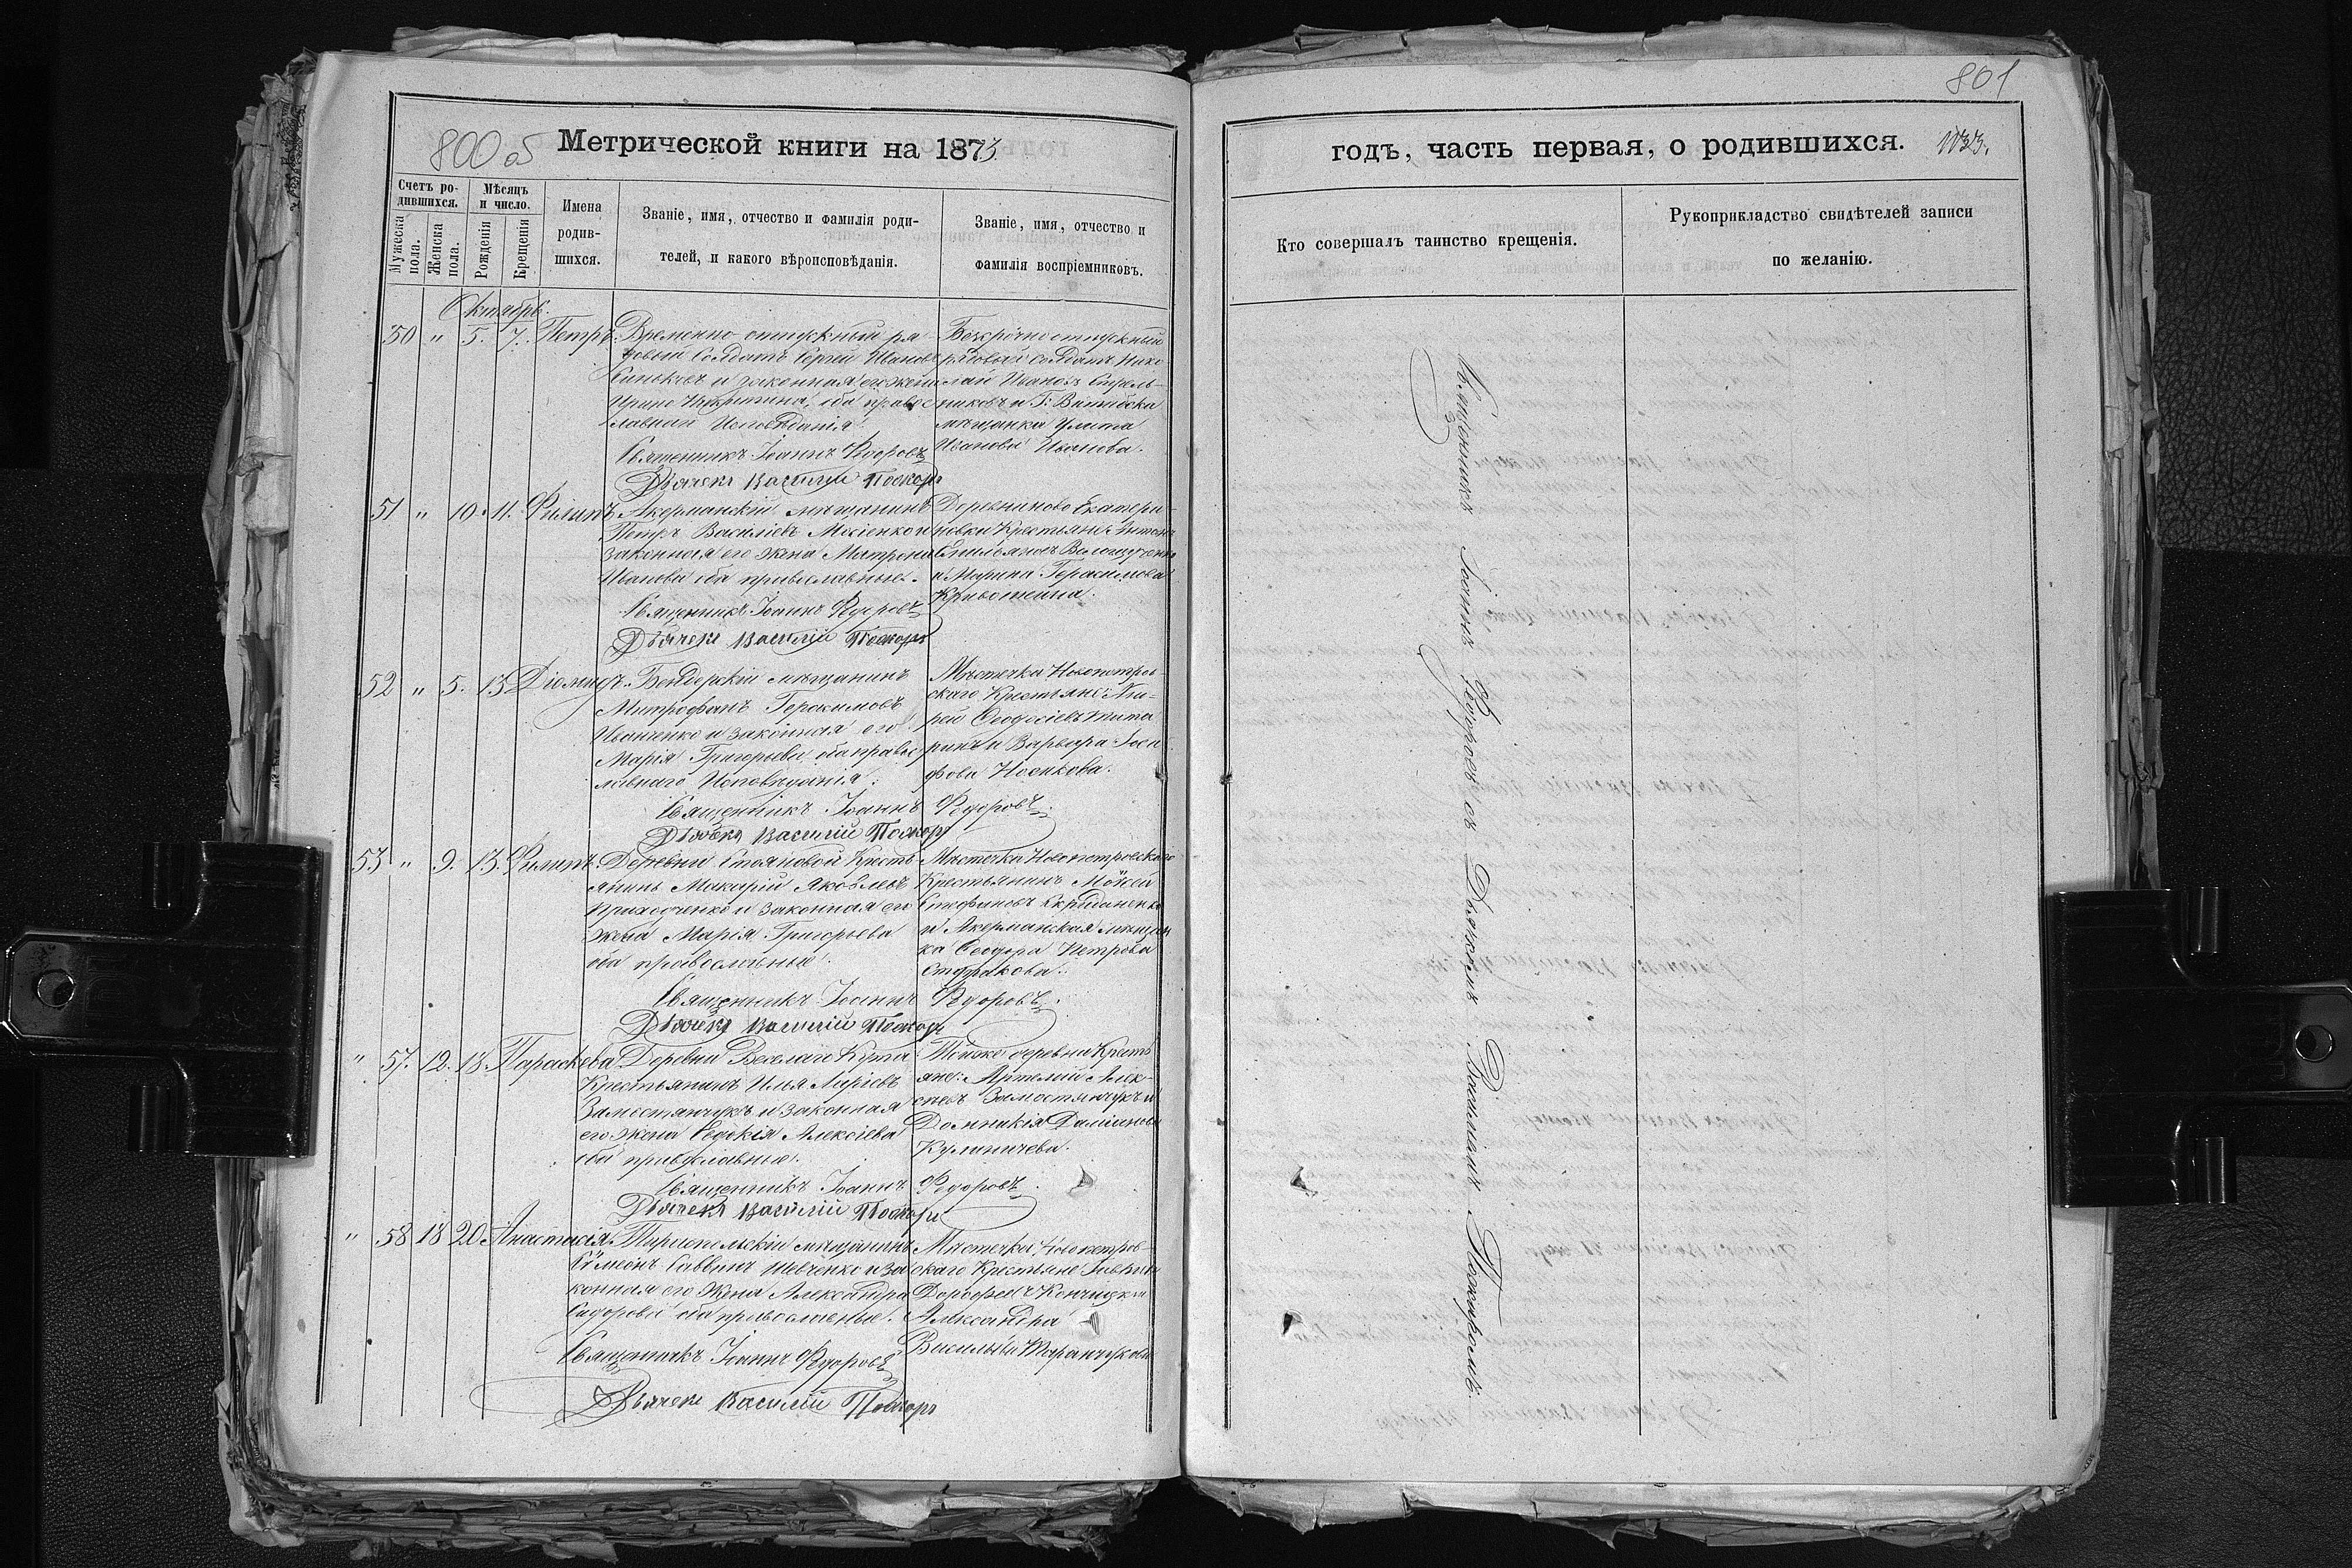 800 об
Метрической книги на 1873.
Счетъ ро-
дившихся.
Мужеска пола.
Женска пола.
Мѣсяцъ
и число.
Рожденія
Крещенія
Имена
родив-
шихся.
Званіе, имя, отчество и фамилія роди-
телей, и какого вѣроисповѣданія.
Званіе, имя, отчество и
фамилія воспріемниковъ.
Октябрь.
50 " 5. 7. Петръ.
Временно отпускный ря-
довый Солдатъ Сергій Ивановъ
и законная его жена
Ирина оба правос
лавнаго Исповѣданія.
Священникъ Іоаннъ Ѳедоровъ
Дьячекъ Василій
Безсрочно отпускный
рядовый солдатъ Нико
лай Ивановъ Стрѣль-
никовъ и Г: Витебска
мѣщанка Улита
Иванова Иванова.
51 " 10. 11. Филипъ
Акерманскій мѣщанинъ
Петръ Василіевъ и
законная его жена Матрона
Иванова оба православные.
Священникъ Іоаннъ Ѳедоровъ
Дьячекъ Василій
Деревни ново Екатери-
новки Крестьяне Антонъ
Емильяновъ
и Марина Герасимова
Кривошеина.
52 " 5. 13 Діомидъ.
Бендерскій мѣщанинъ
Митрофанъ Герасимовъ
Иваненко и законная его
Марія Григорьева оба правос
лавнаго Исповѣданія.
Священникъ Іоаннъ Ѳедоровъ.
Дьячекъ Василій
Мѣстечка Новопетров-
скаго Крестьяне: Ан-
рей Ѳеодосіевъ
и Варвара Іоси
фова Носикова.
53 " 9. 13. Филипъ.
Деревни Стояновой Кресть
янинъ Макарій Яковлевъ
Приходченко и законная его
жена Марія Григорьева
оба православные.
Священникъ Іоаннъ Ѳедоровъ.
Дьячекъ Василій
Мѣстечка Новопетровскаго
Крестьянинъ Моисей
Стефановъ
и Акерманская мѣщан
ка Ѳеодора Петрова
" 57. 12. 18. Параскева
Деревни Веселаго Кута
Крестьянинъ Илья
Замостянчукъ и законная
его жена Евдокія Алексіева
оба православные.
Священникъ Іоаннъ Ѳедоровъ.
Дьячекъ Василій
Тойже деревни Кресть
яне: Артемій Алек-
сѣевъ Замостянчукъ и
Домникія Даміанова
Куликичева.
" 58 18 20 Анастасія.
Тираспольскій мѣщанинъ
Симеонъ Саввинъ Шевченко и за
конная его жена Александра
Сидорова оба православные.
Священникъ Іоаннъ Ѳедоровъ
Дьячекъ Василій
Мѣстечка Новопетров-
скаго Крестьяне
Дорофеевъ
Александра
Васильева
801
годъ, часть первая, о родившихся. 1133.
Кто совершалъ таинство крещенія.
Рукоприкладство свидѣтелей записи
по желанію.
Священникъ Іоаннъ Ѳедоровъ съ Дьячкомъ Василіемъ